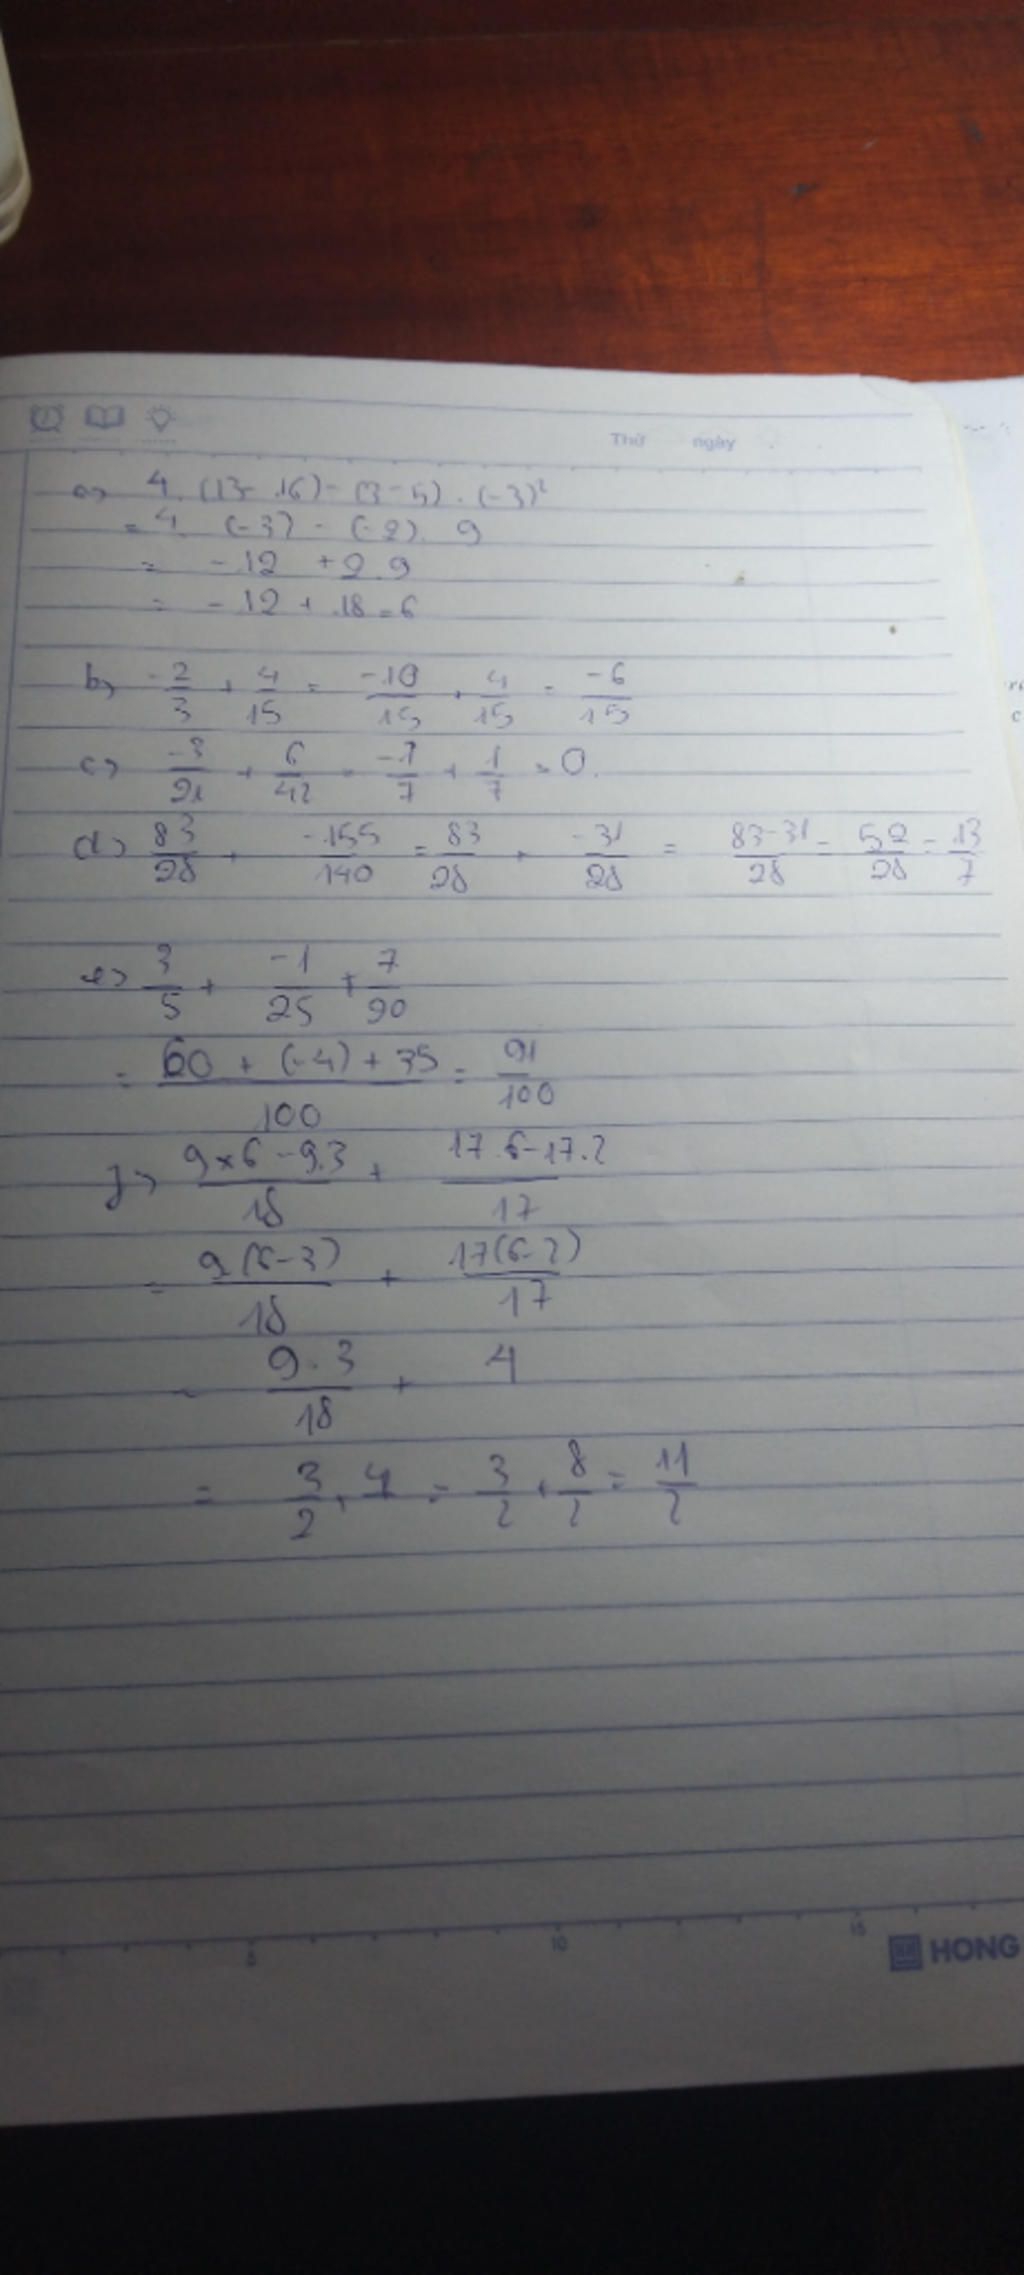 Thứ ngày
a) 4. (13 - 16) - (3 - 5) . (-3)²
= 4. (-3) - (-2). 9
= -12 + 2.9
= -12 + 18 = 6
b) -2/3 + 4/15 = -10/15 + 4/15 = -6/15
c) -3/21 + 6/42 = -1/7 + 1/7 = 0.
d) 83/28 + -155/140 = 83/28 + -31/28 = 83-31/28 = 52/28 = 13/7
e) 3/5 + -1/25 + 7/20
= 60 + (-4) + 35/100 = 91/100
f) 9x6 - 9.3/18 + 17.6-17.2/17
= 9(6-3)/18 + 17(6-2)/17
= 9.3/18 + 4
= 3/2 + 4 = 3/2 + 8/2 = 11/2
5 10 15
HONG